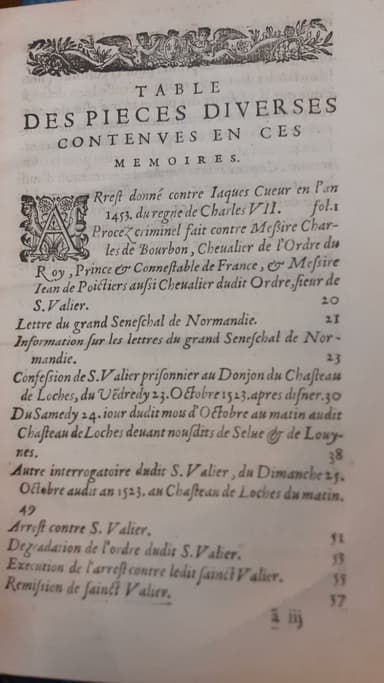 TABLE
DES PIECES DIVERSES
CONTENVES EN CES
MEMOIRES.
ARrest donné contre Iaques Cueur en l'an
1453. du regne de Charles VII. fol.1
Procez criminel fait contre Messire Char-
les de Bourbon, Chevalier de l'Ordre du
Roy, Prince & Connestable de France, & Messire
Iean de Poictiers aussi Chevalier dudit Ordre, sieur de
S. Valier. 20
Lettre du grand Seneschal de Normandie. 21
Information sur les lettres du grand Seneschal de Nor-
mandie. 23
Confession de S. Valier prisonnier au Donjon du Chasteau
de Loches, du Vẽdredy 23. Octobre 1523. apres disner. 30
Du Samedy 24. iour dudit mois d'Octobre au matin audit
Chasteau de Loches devant nousdits de Selue & de Louy-
nes. 38
Autre interrogatoire dudit S. Valier, du Dimanche 25.
Octobre audit an 1523. au Chasteau de Loches du matin.
49
Arrest contre S. Valier. 51
Degradation de l'ordre dudit S. Valier. 53
Execution de l'arrest contre ledit sainct Valier. 55
Remission de sainct Valier. 57
ã iij